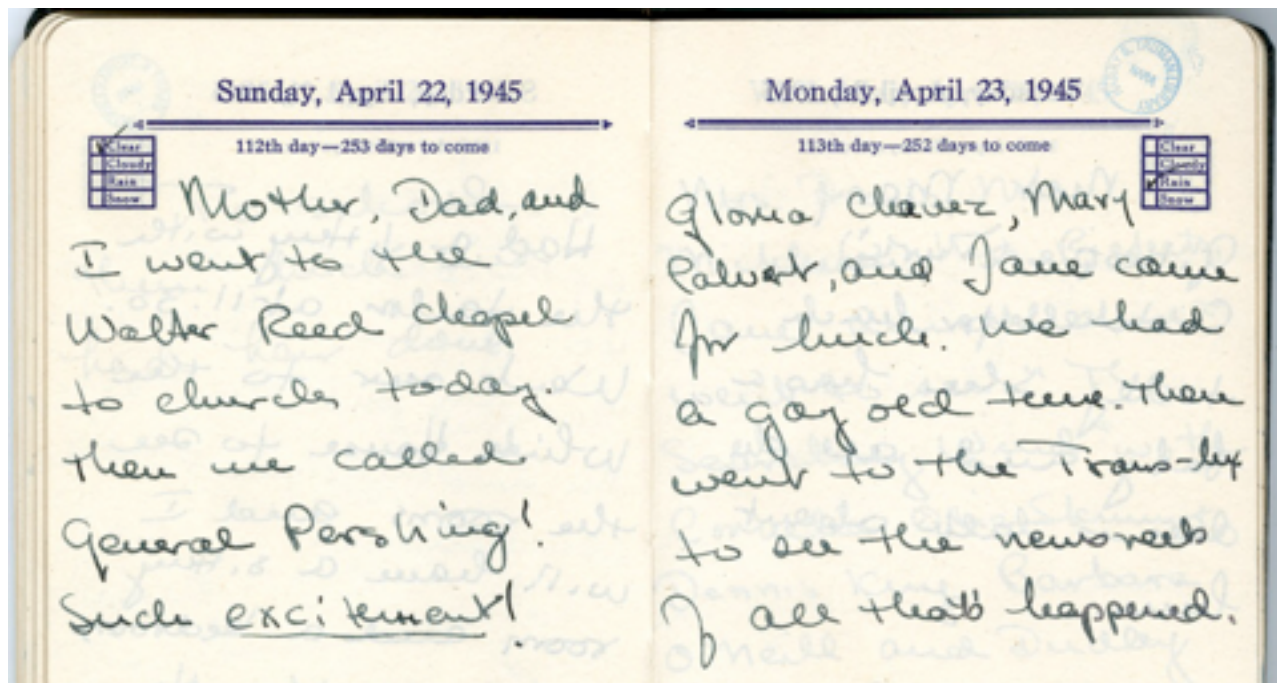 Sunday, April 22, 1945
112th day—253 days to come
Clear
Cloudy
Rain
Snow
Mother, Dad, and
I went to the
Walter Reed chapel
to church today.
Then we called
General Pershing!
Such excitement!
Monday, April 23, 1945
113th day—252 days to come
Clear
Cloudy
Rain
Snow
Gloria Chavez, Mary
Calvert, and Jane came
for lunch. We had
a gay old time. Then
went to the Trans-lux
to see the newsreels
of all that's happened.